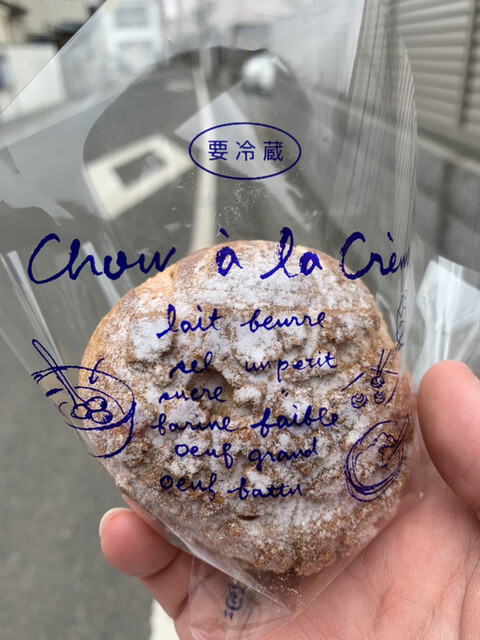 要冷蔵
Chow à la Crèm
lait beurre
sel un petit
sucre "
farine faible
oeuf grand
oeuf battu